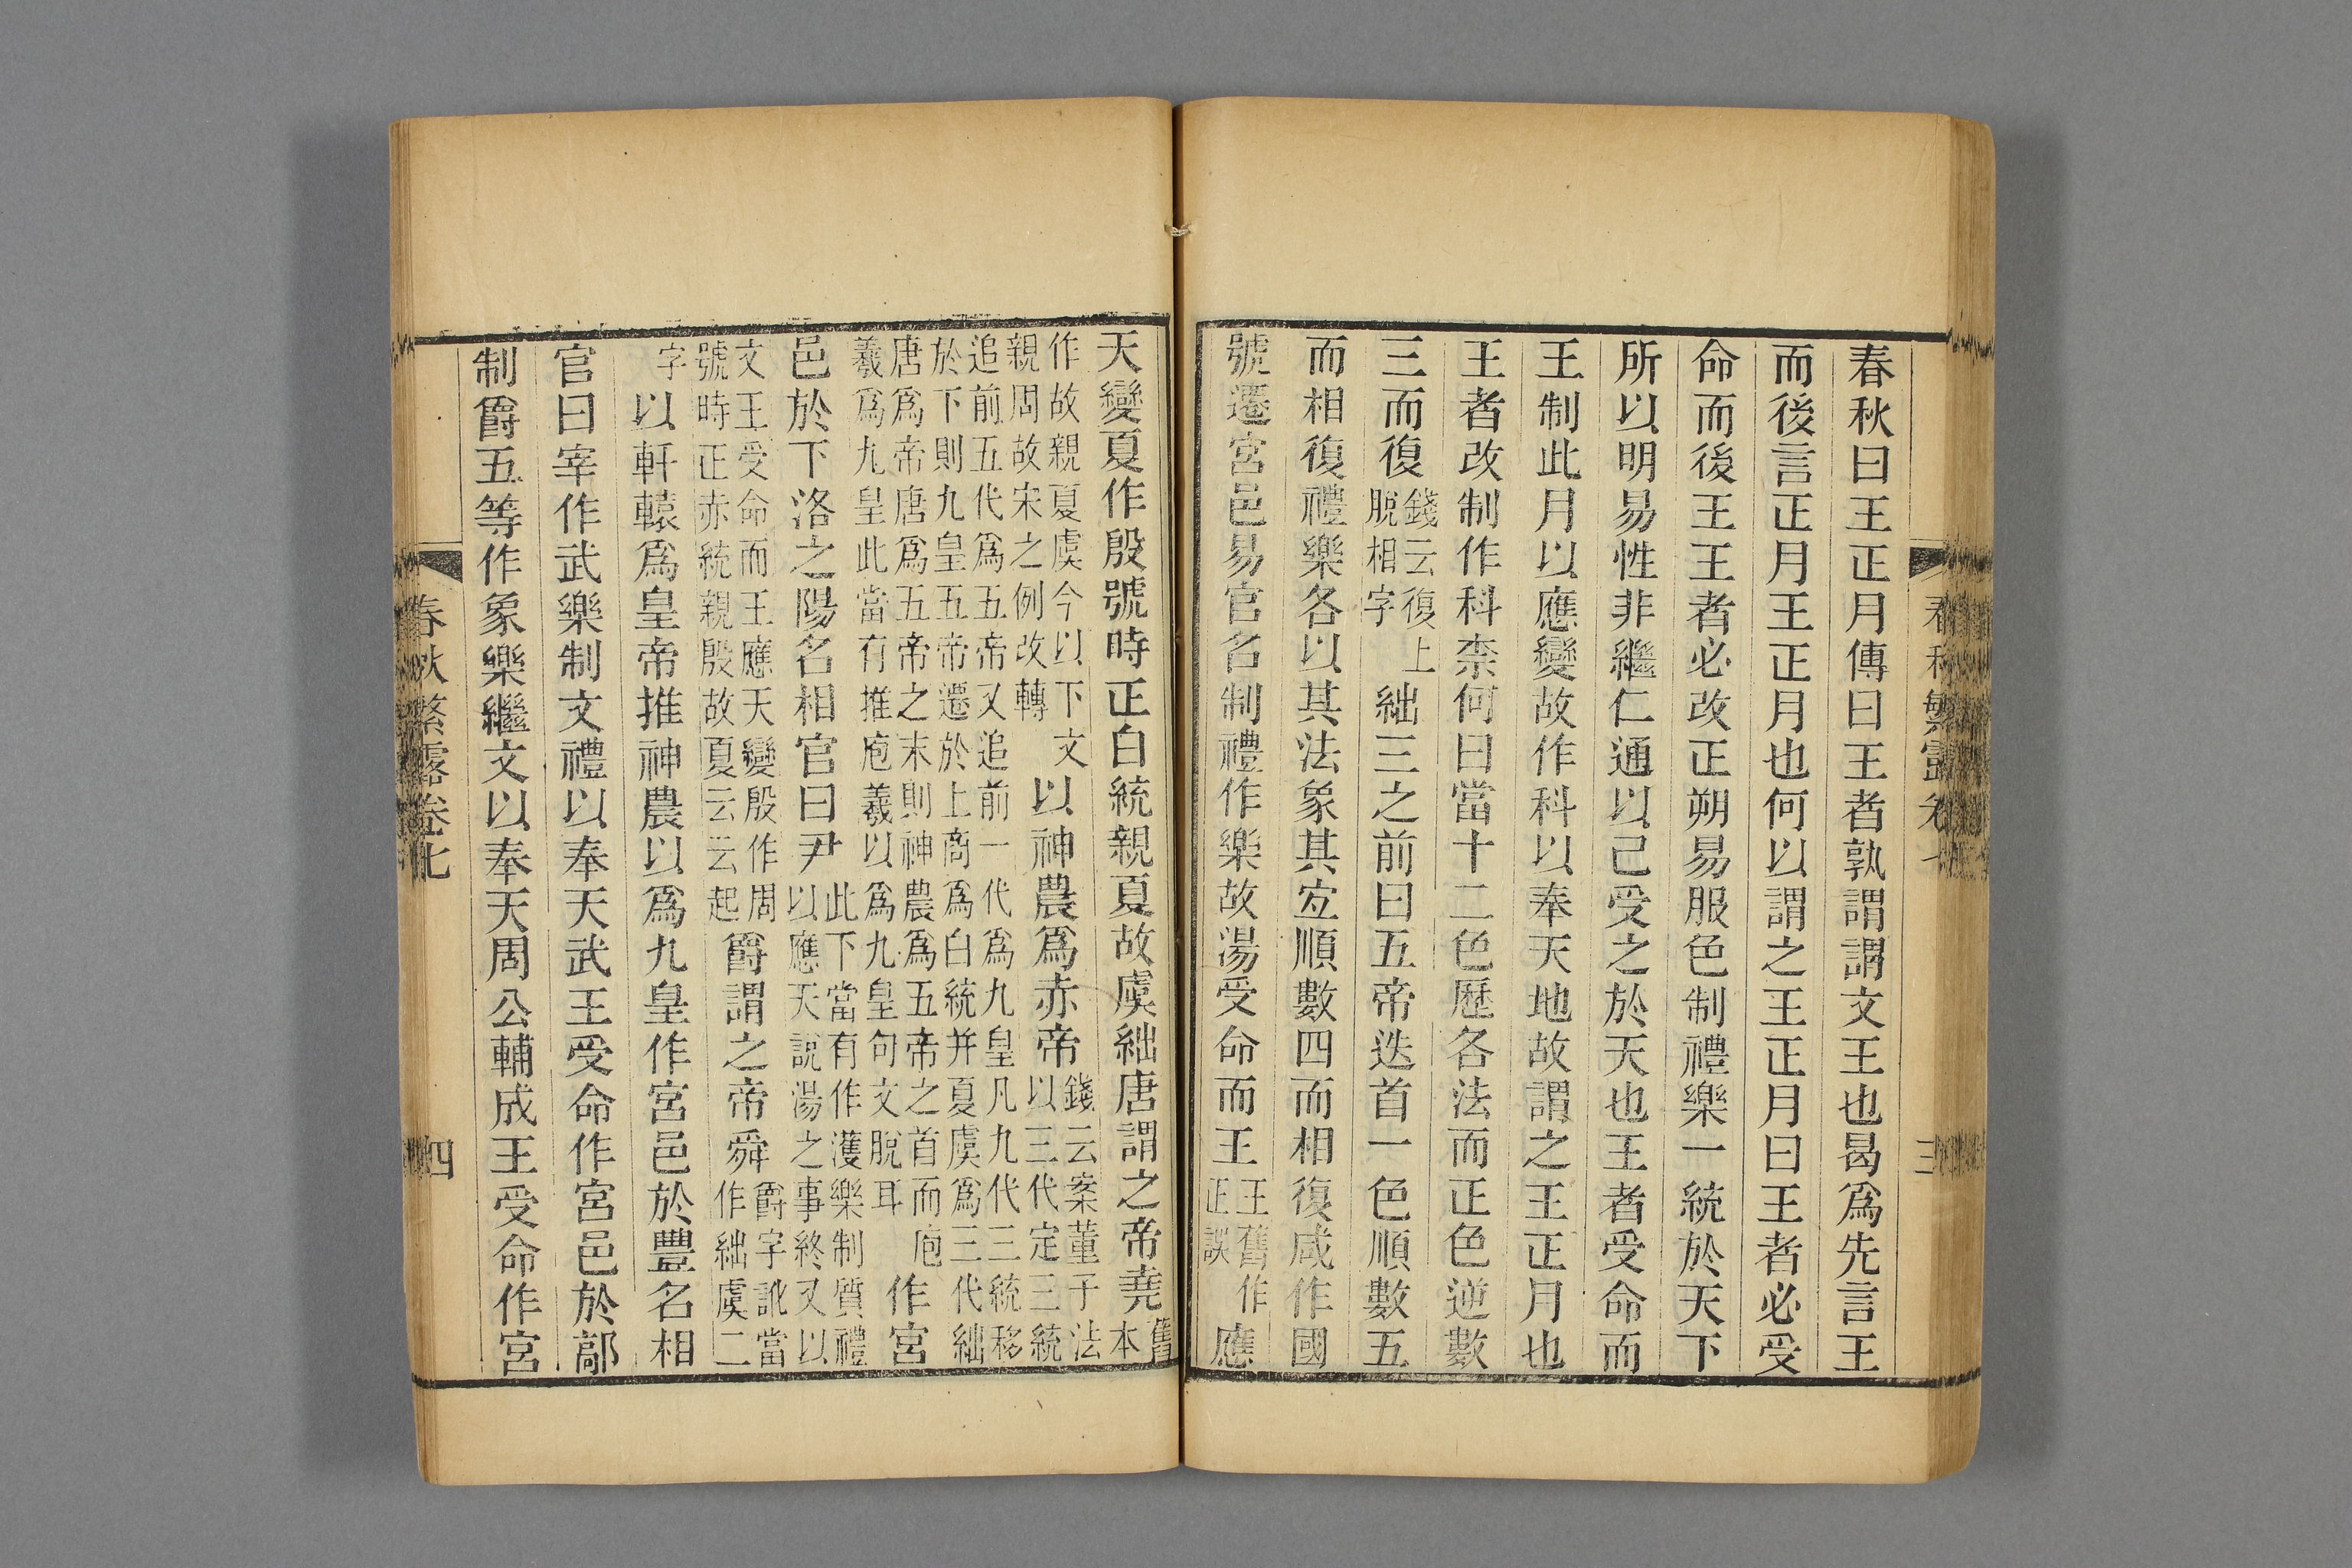 春秋繁露卷七 三
春秋曰王正月傳曰王者孰謂謂文王也曷爲先言王
而後言正月王正月也何以謂之王正月曰王者必受
命而後王王者必改正朔易服色制禮樂一統於天下
所以明易性非繼仁通以己受之於天也王者受命而
王制此月以應變故作科以奉天地故謂之王正月也
王者改制作科柰何曰當十二色歷各法而正色逆數
三而復錢云復上脫相字絀三之前曰五帝迭首一色順數五
而相復禮樂各以其法象其宐順數四而相復咸作國
號遷宮邑易官名制禮作樂故湯受命而王王舊作正誤應
天變夏作殷號時正白統親夏故虞絀唐謂之帝堯舊本
作故親夏虞今以下文親周故宋之例改轉以神農爲赤帝錢云案董子法以三代定三統
追前五代爲五帝又追前一代爲九皇凡九代三統移於下則九皇五帝遷於上商爲白統并夏虞爲三代絀
唐爲帝唐爲五帝之末則神農爲五帝之首而庖羲爲九皇此當有推庖羲以爲九皇句文脫耳作宮
邑於下洛之陽名相官曰尹此下當有作濩樂制質禮以應天說湯之事終又以
文王受命而王應天變殷作周號時正赤統親殷故夏云云起爵謂之帝舜爵字訛當作絀虞二
字以軒轅爲皇帝推神農以爲九皇作宮邑於豐名相
官曰宰作武樂制文禮以奉天武王受命作宮邑於鄗
制爵五等作象樂繼文以奉天周公輔成王受命作宮
春秋繁露卷七 四